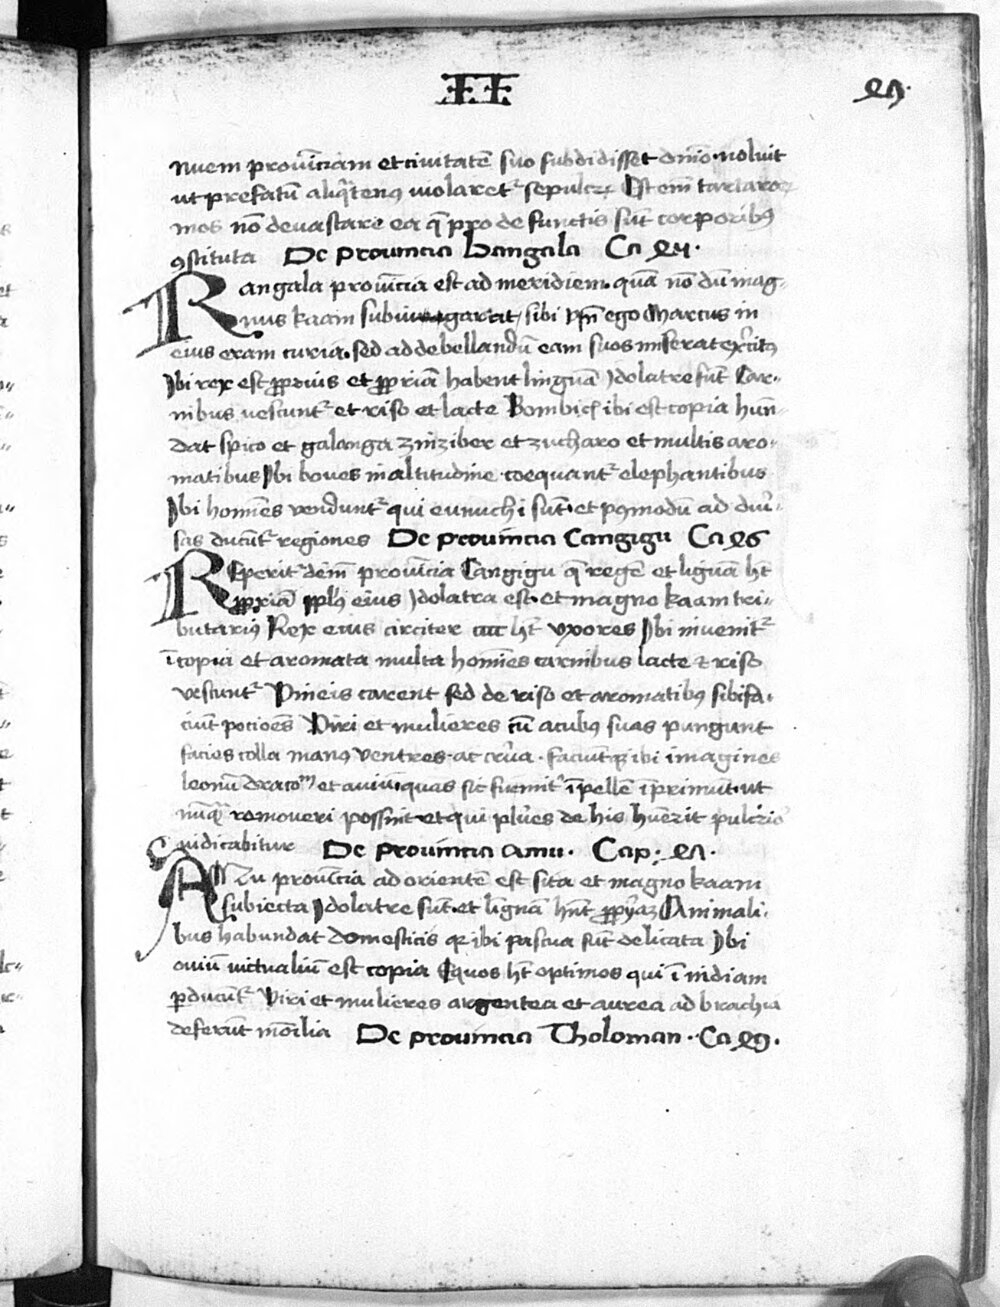 II
nuem prouīciam et ciuitatē suo subdidisset dn̄io · noluit
ut prefatū aliq̄tenꝰ uiolaretᷣ sepulcrū Est em̄ tartaroꝝ
mos nō deuastare ea q̄ pro defunctis sūt corporibꝰ
ꝯstituta De prouincia bangala Ca
Bangala prouīcia est ad meridiem quā nō dū mag-
nus kaam subiugarat sibi ego Marcus in
eius eram curia. sed ad debellandū eam suos miserat exc̄itꝰ
Ibi rex est ꝓprius et ꝓpriā habent linguā Idolatre sūt Car-
nibus uescuntᷣ et riso et lacte Bombicis ibi est copia habun-
dat spico et galanga zinziber et zucharo et multis aro-
matibus Ibi boues in altitudine coequantᷣ elephantibus
Ibi homīes vendūtᷣ qui eunuchi sūt · et pꝰmodū ad diu̓-
sas ducūtᷣ regiones De prouincia Cangigu Ca
Reperitᷣ dem̄ prouīcia Cangigu q̄ regē et liguā hēt
ꝓpriā ppl̓s eius Idolatra est · et magno kaam tri-
butariꝰ Rex eius circiter ccc hēt vxores Ibi inuenitᷣ
copia et aromata multa homīes carnibus lacte ⁊ riso
vescuntᷣ Vineis carent sed de riso et aromatibꝰ sibi fa-
ciūt pocioēs Viri et mulieres cū acubꝰ suas pungunt
facies colla manꝰ ventres ac crura · faciūtqꝫ ibi imagines
leonū draconū et auiū quas sic fuemitᷣ ī pelle īprimūt ut
nūq̄ꝫ remoueri possint et qui plu̓es de his habuerit pulcrior
iudicabitur De prouincia amu · Cap:
Amu prouīcia ad orientē est sita et magno kaam
subiecta Idolatre sūt · et liguā hn̄t ꝓpriaꝫ Animali-
bus habundat domesticis qꝛ ibi pascua sūt delicata Ibi
oīum uictualiū est copia Equos hn̄t optimos qui ī indiam
ꝑducūtᷣ Viri et mulieres argentea et aurea ad brachia
deferūt monilia De prouincia Tholoman · Ca